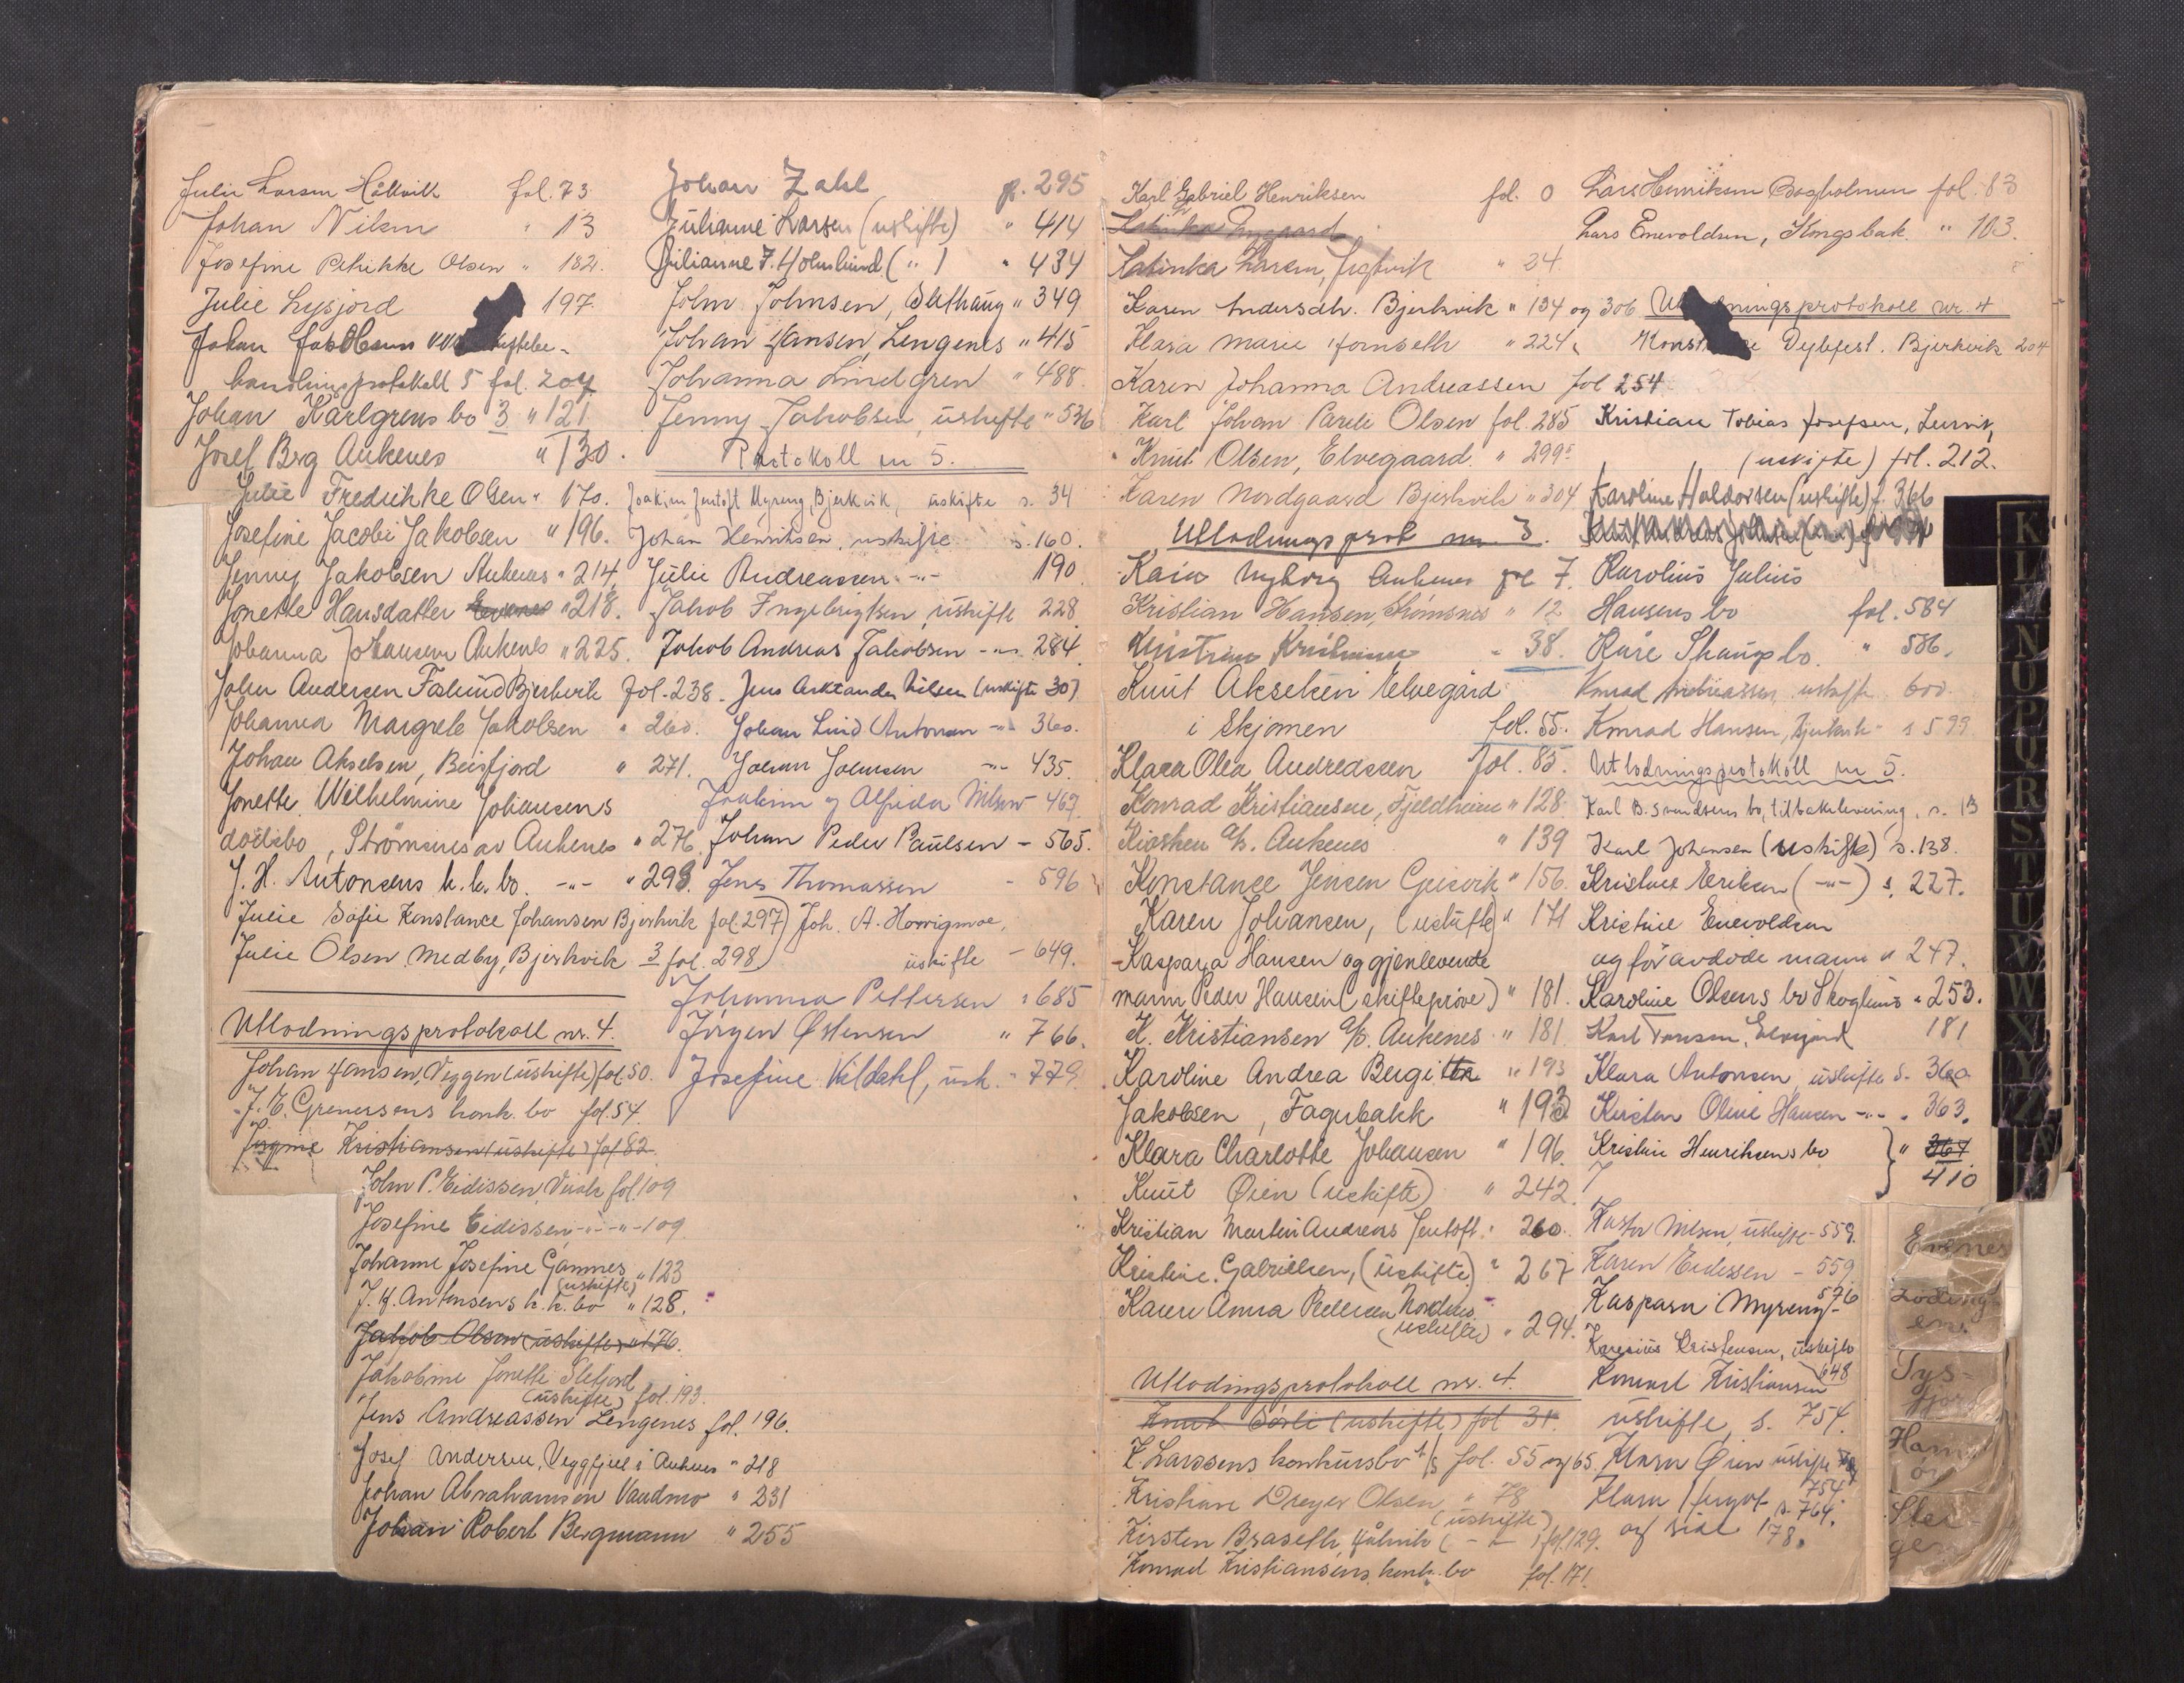 Julie Larsen Håkvik fol. 73
Johan Nilsen " 13
Josefine Petrikke Olsen " 182.
Julie Lysjord 197.
Johan Jakobsens
handlingsprotokoll 5 fol. 204
Johan Karlgrens bo 3 " 121
Josef Berg Ankenes " 130.
Julie Fredrikke Olsen " 170.
Josefine Jacobie Jakobsen " 196.
Jenny Jakobsen Ankenes " 214.
Jonette Hansdatter " 218.
Johanna Johansen Ankenes " 225.
John Andersen Foslund Bjerkvik fol. 238.
Johanna Margrete Jakobsen " 260.
Johan Akselsen, Beisfjord " 271.
Jonette Wilhelmine Johansens
dødsbo, Strømsnes av Ankenes " 276.
J. H. Antonsens k.k. bo. -"- " 293.
Julie Sofie Konstance Johansen Bjerkvik fol. 297)
Julie Olsen Medby, Bjerkvik 3 fol. 298)
Utlodningsprotokoll nr. 4.
Johan Hansen, Veggen (uskifte) fol. 50.
J. K. Grenersens konk. bo fol. 54.
Kristiansen (uskifte) fol 82.
John P. Eidissen, Virak fol. 109
Josefine Eidissen -"- -"- 109
Johanne Josefine Gamnes " 123
(uskifte)
J. H. Antonsens k. k. bo " 128.
Jakob Olsen (uskifte) " 176.
Jakobine Jonette Sletjord
(uskifte) fol. 193.
Jens Andreassen Lengenes fol. 196.
Josef Andersen, Veggfjell i Ankenes " 218
Johan Abrahamsen Vandmo " 231
Johan Robert Bergmann " 255
Johan Zahl p. 295
Julianne Larsen (uskifte) " 414
Julianne J. Holmlund ( " ) " 434
John Johnsen, Slethaug " 349
Johan Hansen, Lengenes " 415
Johanna Lindgren " 488.
Jenny Jakobsen, uskifte " 536
Protokoll nr 5.
Joakim Jentoft Myreng, Bjerkvik, uskifte s. 34
Johan Henriksen, uskifte s. 160.
Julie Andreassen -"- 190.
Jakob Ingebrigtsen, uskifte 228.
Jakob Andreas Jakobsen -"- 284.
Jens Arktander Nilsen (uskifte 30)
Johan Lind Antonsen -"- 360.
Johan Johnsen -"- 435.
Joakim og Alfrida Nilsen 467.
Johan Peder Paulsen - 565.
Jens Thomassen - 596
Joh. A. Horrigmoe,
uskifte - 649.
Johanna Pettersen " 685
Jörgen Østensen " 766.
Josefine Kildahl, usk. " 779.
Karl Gabriel Henriksen fol. 0
Katinka Nygaard
Katinka Larsen, " 24
Karen Andersdtr. Bjerkvik " 134 og 306
Klara Marie Fornseth " 224
Karen Johanna Andreassen fol 254
Karl Johan Parele Olsen fol. 285
Knut Olsen, Elvegaard. " 299
Karen Nordgaard Bjerkvik " 304
Utlodningsprot nr. 3.
Kaia Nyborg Ankenes fol 7.
Kristian Hansen, Strømsnes " 12
" 38.
Knut Akselsen Elvegård
i Skjomen fol. 55.
Klara Olea Andreassen fol. 85.
Konrad Kristiansen, Fjeldheim " 128.
Kiosken a/s. Ankenes " 139
Konstance Jensen Geisvik " 156.
Karen Johansen, (uskifte) " 171
Kaspara Hansen og gjenlevende
mann Peder Hansen (skifteprøve) " 181.
K. Kristiansen a/s. Ankenes " 181.
Karoline Andrea Bergitte " 193
Jakobsen, Fagerbakk " 193
Klara Charlotte Johansen " 196.
Knut Øien (uskifte) " 242.
Kristian Martin Andreas Jentoft " 260.
Kristine Gabrielsen, (uskifte) " 267
Karen Anna Pedersen Nordnes
(uskifte) " 294.
Utlodingsprotokoll nr. 4.
Knut Sørli (uskifte) fol 31.
K. Larssens konkursbo fol. 55 og 65.
Kristian Dreyer Olsen " 78
(uskifte)
Kirsten Braseth, Håkvik ( - " - ) fol. 129.
Konrad Kristiansens konk. bo fol. 171.
Lars Henriksen Bogholmen fol. 83
Lars Enevoldsen, Kongsbak. " 103.
ningsprotokoll nr. 4
Dybfest. Bjerkvik 204
Kristian Tobias Josefsen, Lenvik,
(uskifte) fol. 212.
Karoline Haldorsen (uskifte) f. 366
Karolius Julius
Hansens bo fol. 584
Kåre Skaugs bo. " 586.
Konrad Andreassen, uskifte 600.
Konrad Hansen, Bjerkvik - s 599.
Utlodningsprotokoll nr 5.
Karl B. Svendsens bo, tilbakelevering, s. 13
Karl Johansen (uskifte) s. 138.
Kristine Eriksen (-"-) s. 227.
Kristine Enevoldsen
og før avdøde mann " 247.
Karoline Olsens bo Skoglund " 253.
Karl Hansen, Elvegård 181
Klara Antonsen, uskifte s. 360
Kirsten Oline Hansen -"- 363.
Kristine Henriksens bo } " 367
410
Kastor Nilsen, uskifte - 559.
Karen Eidissen - 559
Kaspara Myreng - 576
Karesius Kristensen, uskifte
648
Konrad Kristiansen
uskifte, s. 754.
Klara Øien uskifte
754.
Klara s. 764.
og side 178.
K
L
N
O
P
Q
R
S
T
U
V
W
X
Y
Z
Evenes
Lödingen
Tysfjord
Hamarøy
Steigen